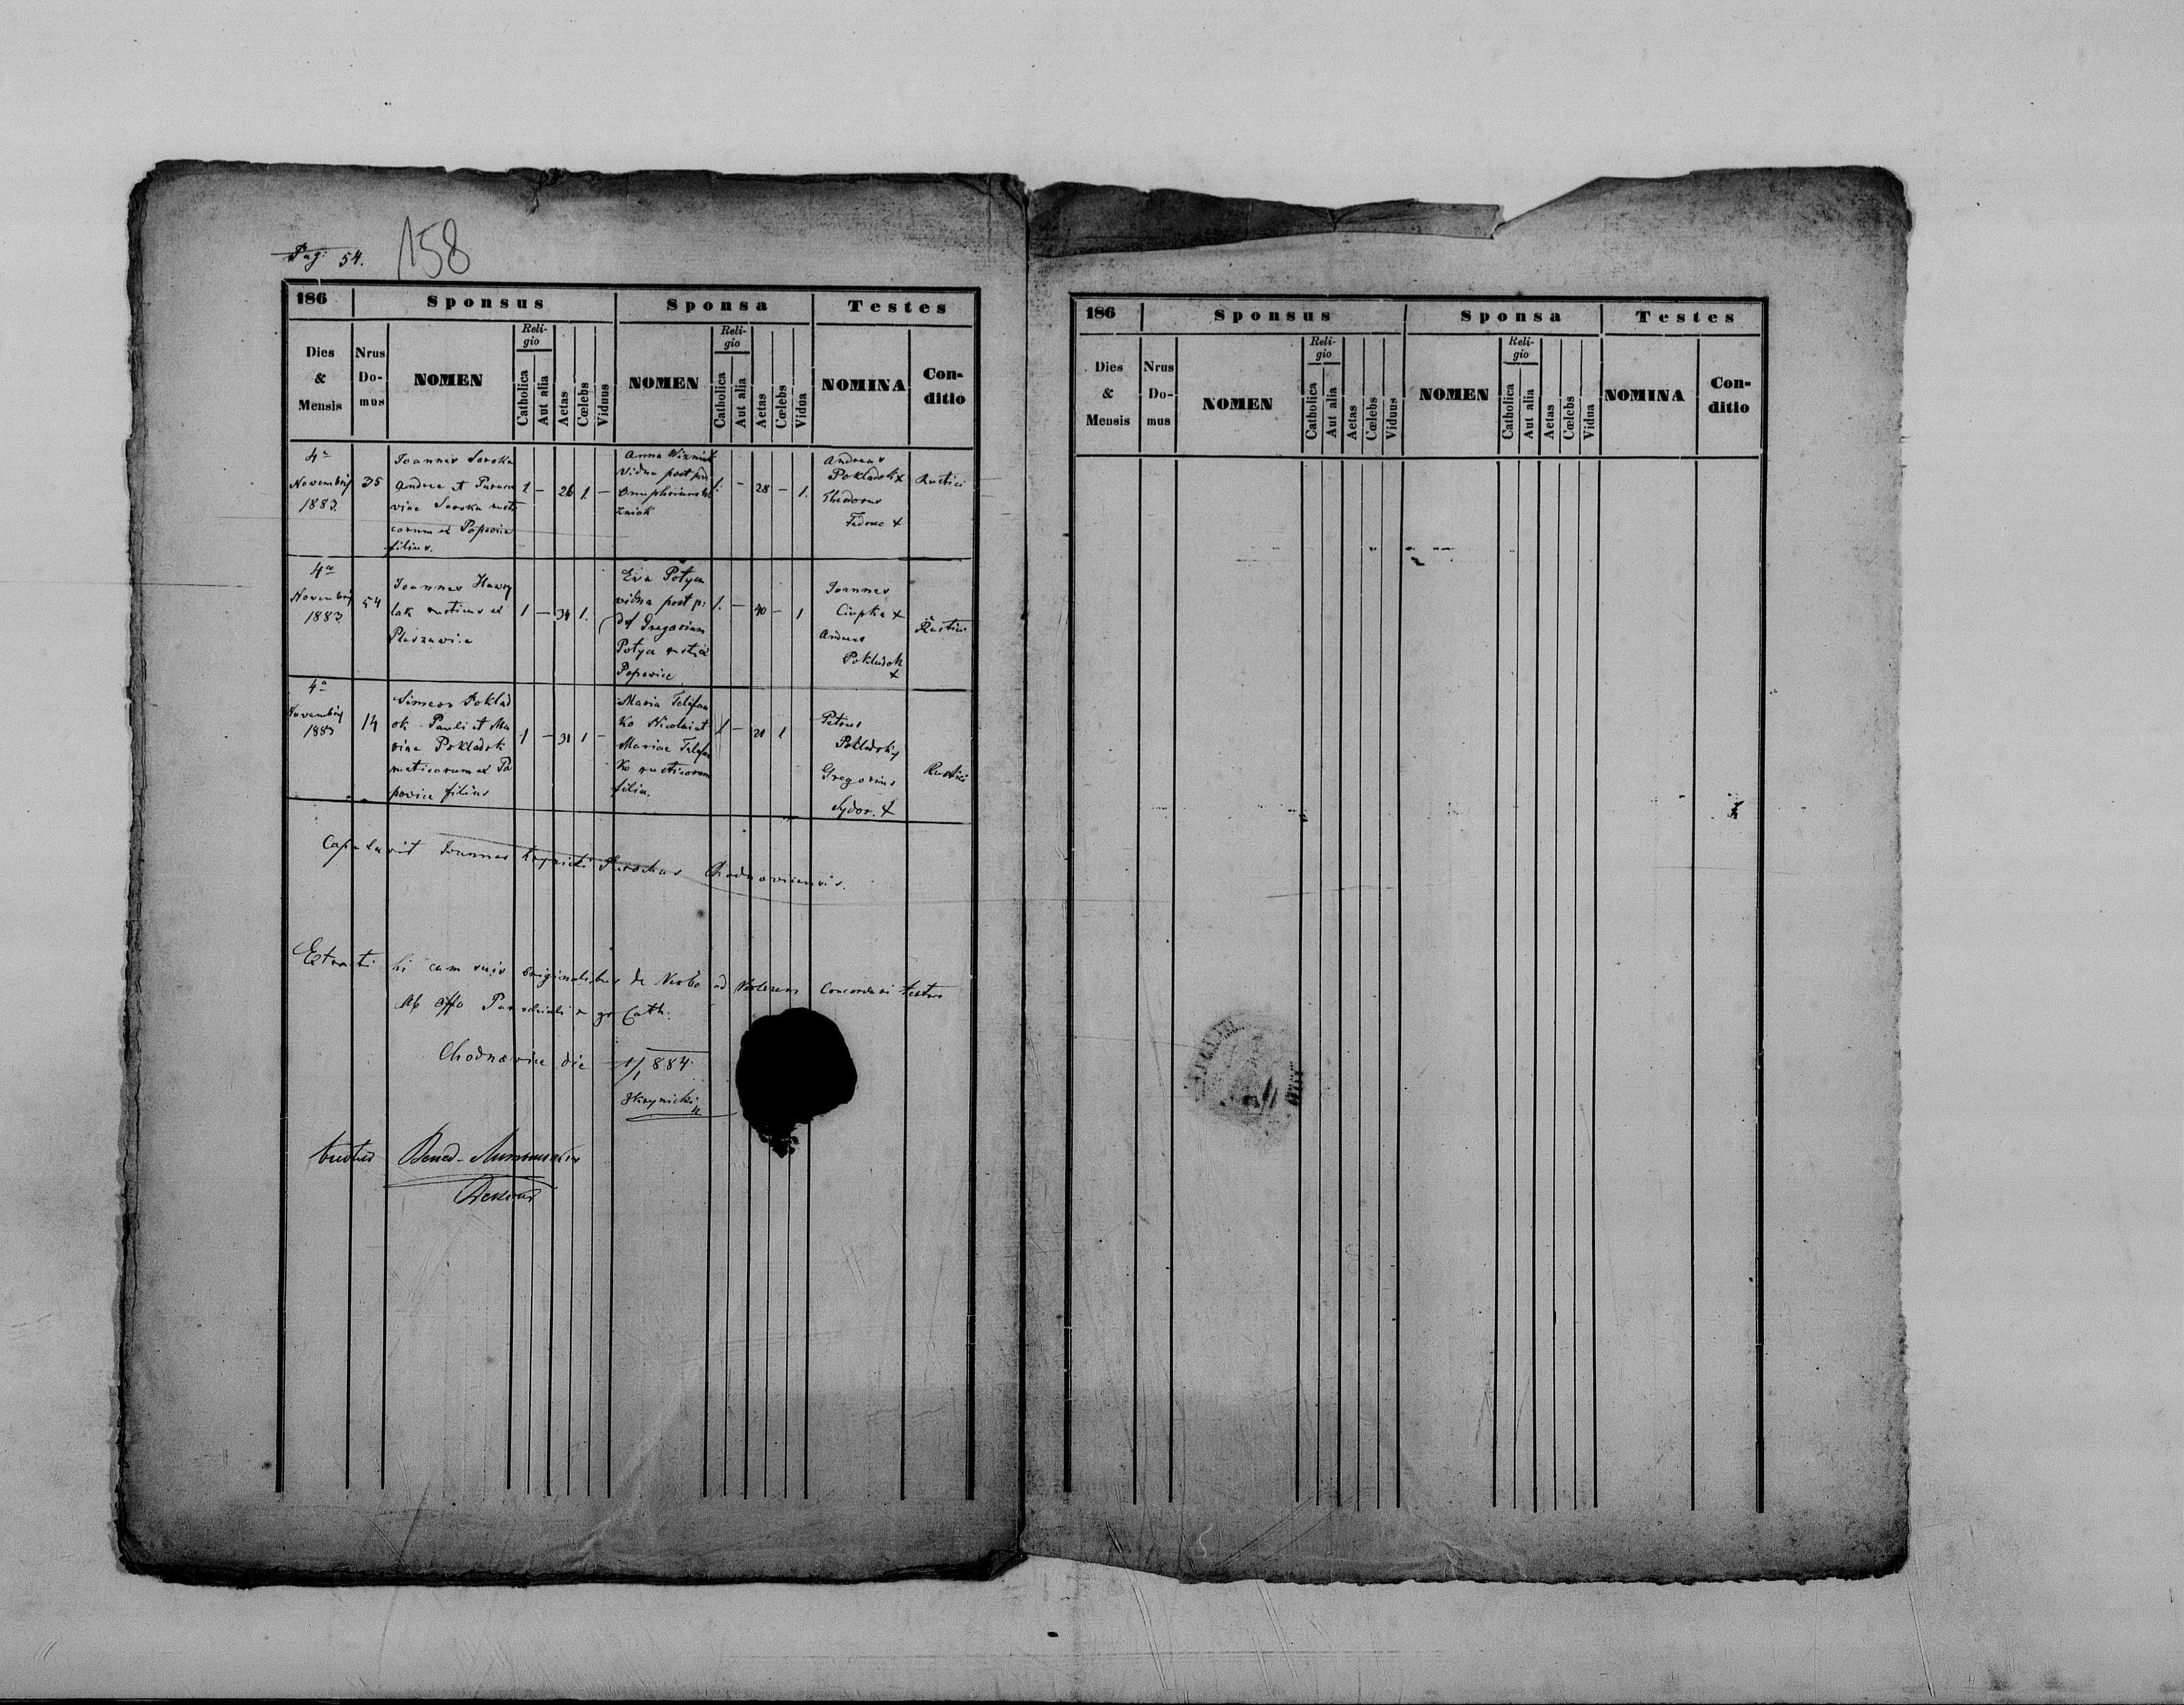 Pag: 54.
158
186
Sponsus
Sponsa
Testes
Dies & Mensis
Nrus Domus
NOMEN
Religio
Catholica
Aut alia
Aetas
Cœlebs
Viduus
NOMEN
Religio
Catholica
Aut alia
Aetas
Cœlebs
Vidua
NOMINA
Conditio
4a
Novembris
1883.
35
Joannes Soroka
Andrea et Parasce
viae Soroka rusti
corum ex Popowice
filius.
1 – 26 1 –
Anna
Vidua post
1. – 28 – 1.
Andreas
Pokladok +
Theodorus
+
Rustici
4a
Novembris
1883
54
Joannes Hawry
lak rusticus ex
1 – 34 1.
Eva Potyca
vidua post p:
def Gregorium
Potyca
Popowice
1. – 40 – 1
Joannes
Ciupka +
Andreas
Pokladok
+
Rustici
4a
Novembris
1883
14
Simeon Poklad
ok Pauli et Ma
riae Pokladok
rusticorum ex Po
powice filius
1 – 31 1 –
Maria Telefan
ko Nicolai et
Mariae Telefan
ko rusticorum
filia.
1 – 21 1
Petrus
Gregorius
Sydor. +
Rustici
Copulavit Joannes Parochus Chodnoviciensis.
Extracti hi cum suis originalibus de Verbo ad Verbum Concordari testor
Ab offo Parochiali r gr Cath:
Chodnowice die 1/1 884
testes Bened.
186
Sponsus
Sponsa
Testes
Dies & Mensis
Nrus Domus
NOMEN
Religio
Catholica
Aut alia
Aetas
Cœlebs
Viduus
NOMEN
Religio
Catholica
Aut alia
Aetas
Cœlebs
Vidua
NOMINA
Conditio